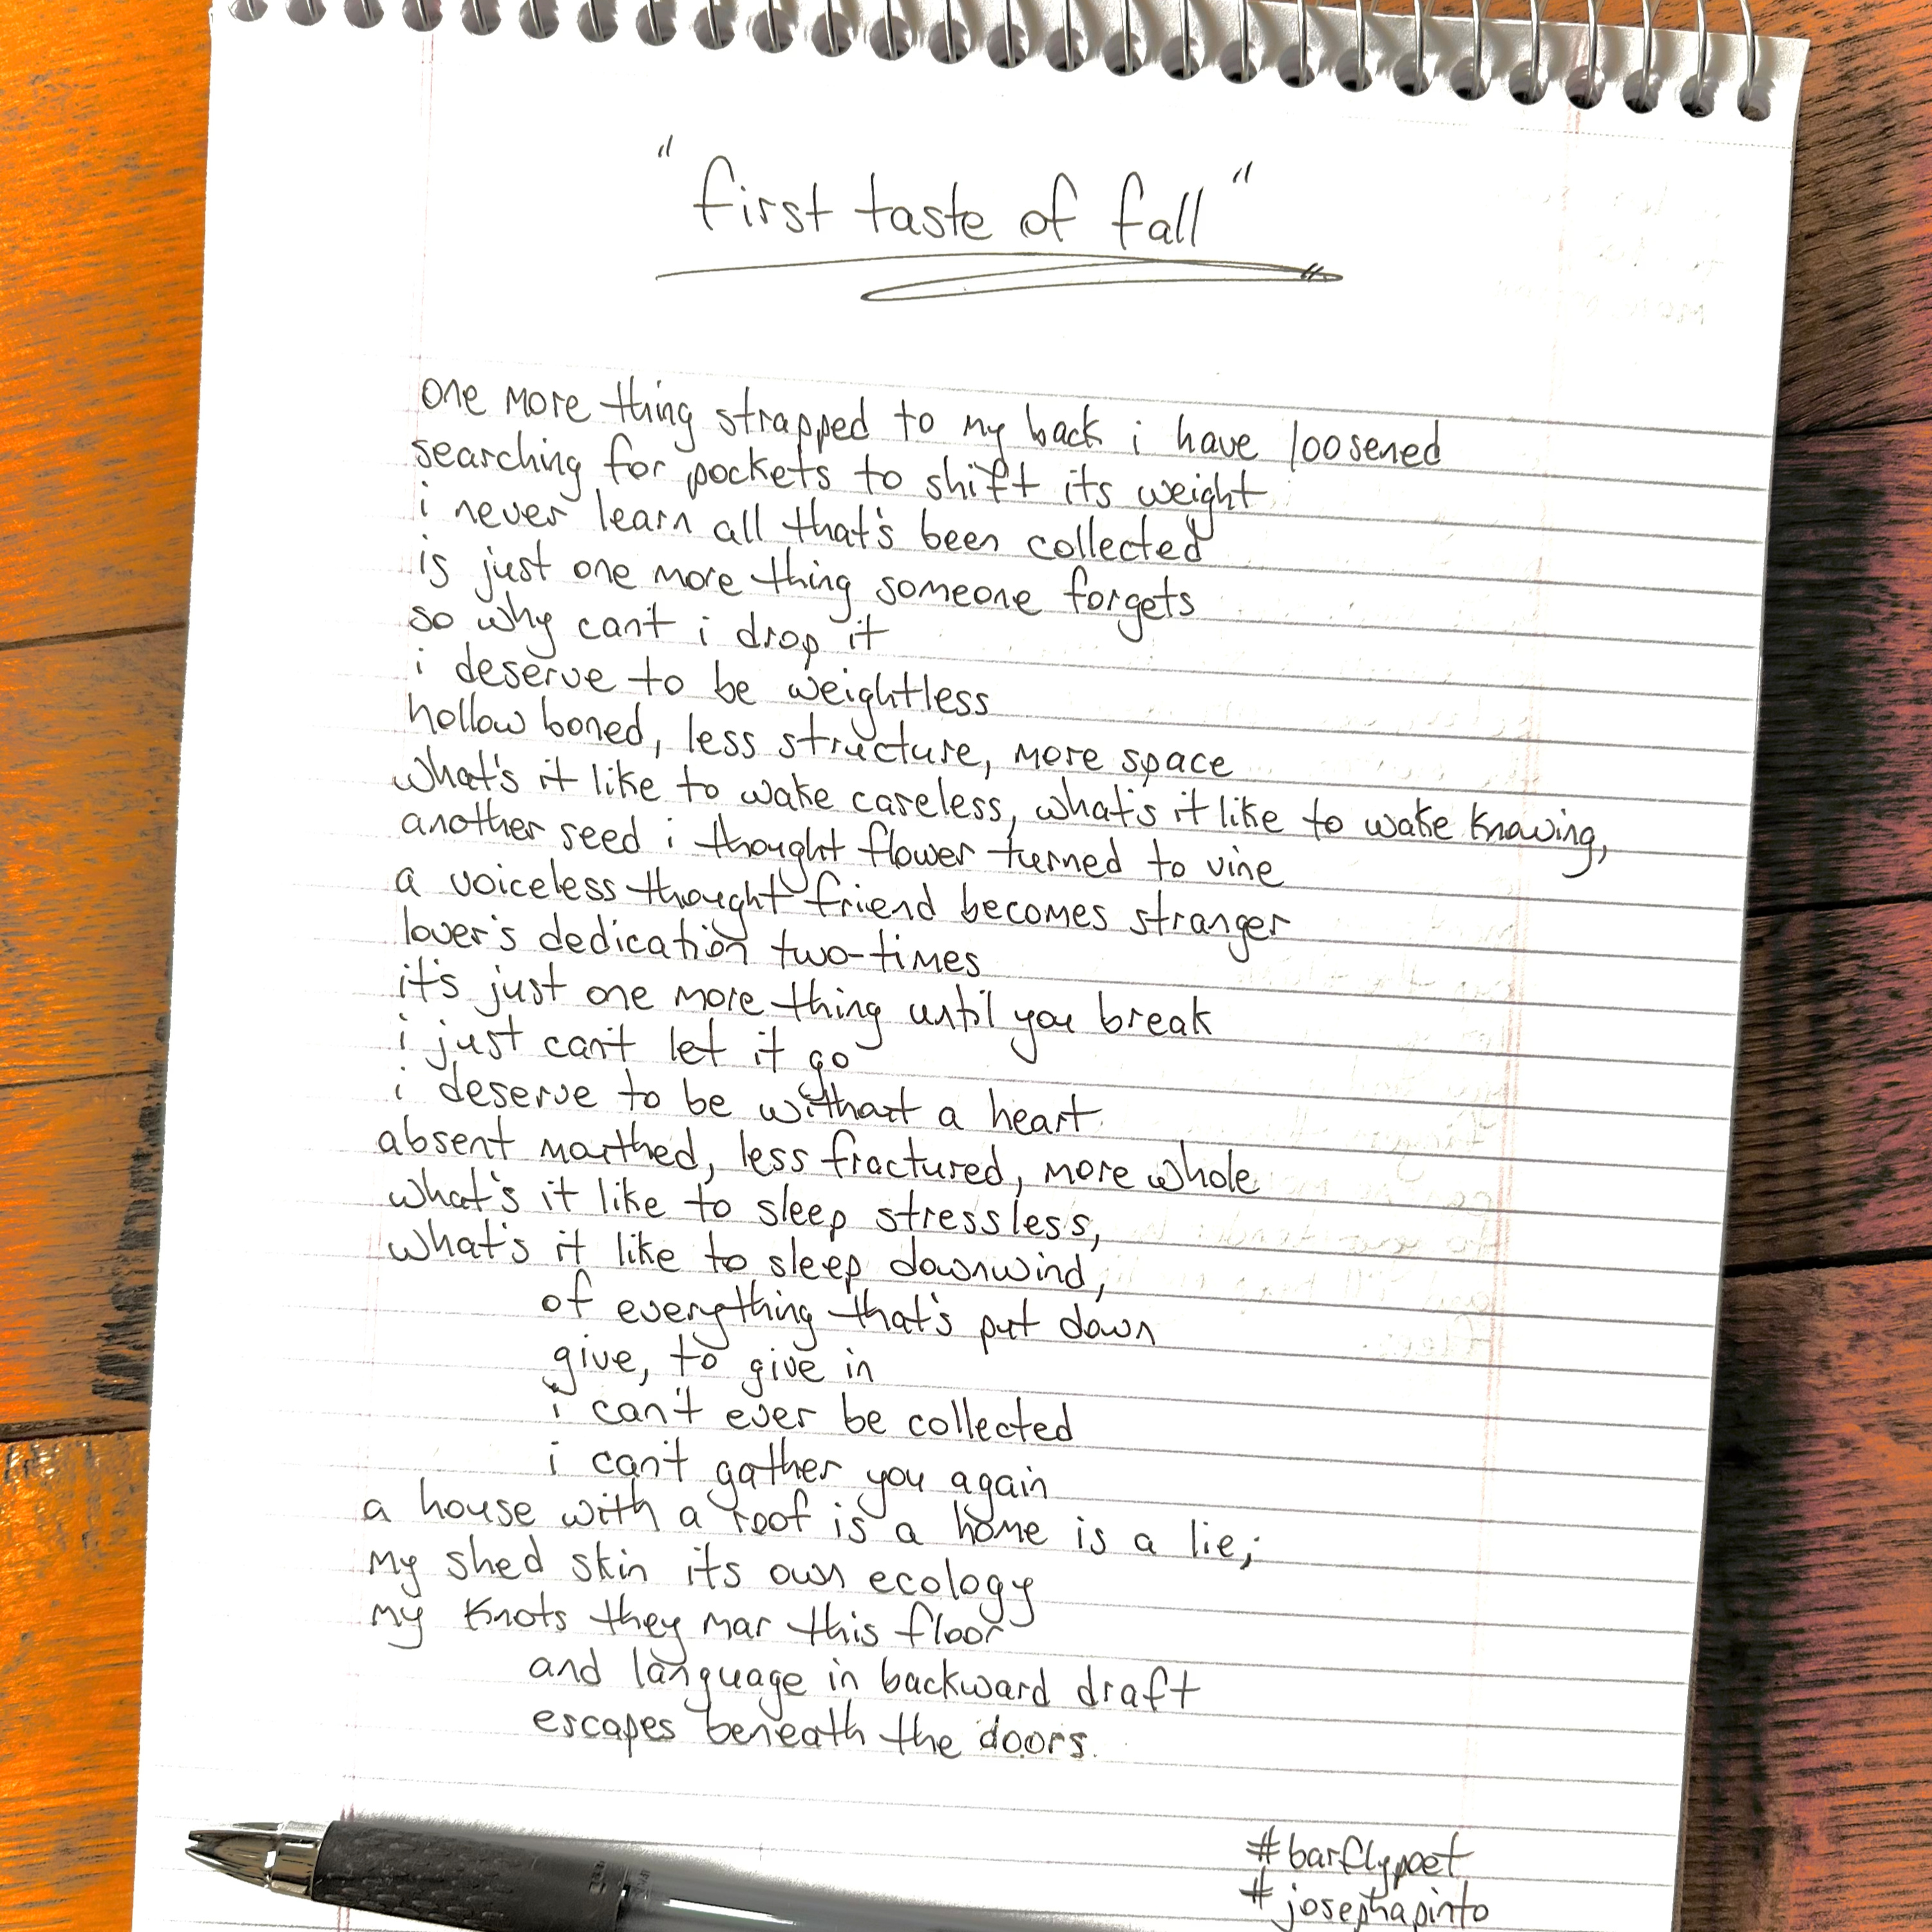 "first taste of fall"
one more thing strapped to my back i have loosened
searching for pockets to shift its weight
i never learn all that's been collected
is just one more thing someone forgets
so why can't i drop it
i deserve to be weightless
hollow boned, less structure, more space
what's it like to wake careless, what's it like to wake knowing,
another seed i thought flower turned to vine
a voiceless thought friend becomes stranger
lover's dedication two-times
it's just one more thing until you break
i just can't let it go
i deserve to be without a heart
absent mouthed, less fractured, more whole
what's it like to sleep stressless,
what's it like to sleep downwind,
of everything that's put down
give, to give in
i can't ever be collected
i can't gather you again
a house with a roof is a home is a lie;
my shed skin its own ecology
my knots they mar this floor
and language in backward draft
escapes beneath the doors.
#barflypoet
#josephapinto